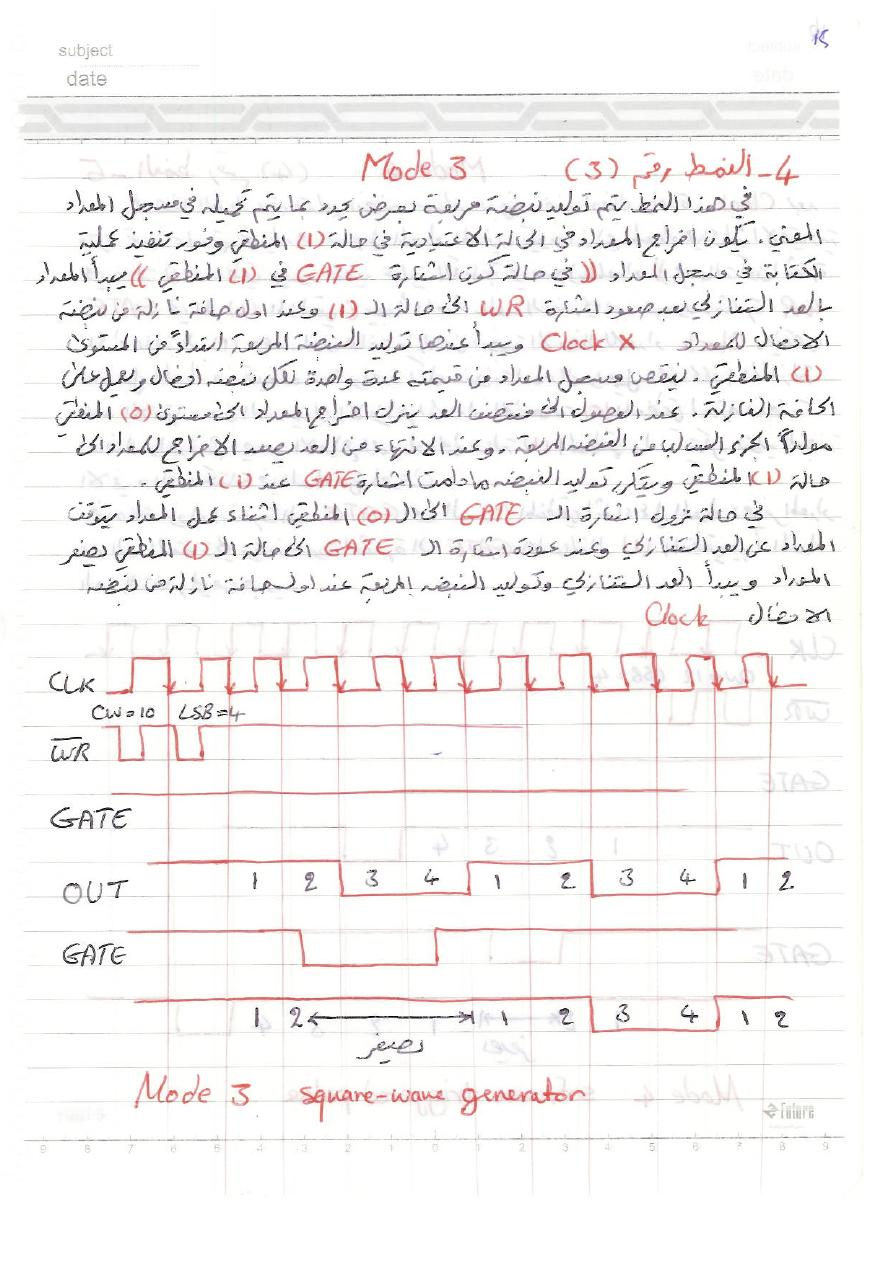 subject
date
4- النمط رقم (3) Mode 3
في هذا النمط يتم توليد نبضة مربعة بعرض يحدد بما يتم تحميله في مسجل العداد
المعني. يكون اخراج العداد في الحالة الاعتيادية في حالة (1) المنطقي وفور تنفيذ عملية
الكتابة في مسجل العداد ((في حالة كون اشارة GATE في (1) المنطقي)) يبدأ العداد
بالعد التنازلي بعد صعود اشارة WR الى حالة الـ (1) وعند اول حافة نازلة من نبضة
الادخال للعداد Clock X ويبدأ عندها توليد النبضة المربعة ابتداءً من المستوى
(1) المنطقي. ينقص مسجل العداد من قيمته عدة واحدة لكل نبضه ادخال ويعمل على
الحافة النازلة. عند الوصول الى منتصف العد ينزل اخراج العداد الى مستوى (0) المنطقي
مولداً الجزء السالب من النبضه المربعة. وعند الانتهاء من العد يصعد الاخراج للعداد الى
حالة (1) المنطقي ويتكرر توليد النبضه مادامت اشارة GATE عند (1) المنطقي.
في حالة نزول اشارة الـ GATE الى الـ (0) المنطقي اثناء عمل العداد يتوقف
العداد عن العد التنازلي وعند عودة اشارة الـ GATE الى حالة الـ (1) المنطقي يصفر
العداد ويبدأ العد التنازلي وتوليد النبضه المربعة عند اول حافة نازلة من نبضه
الادخال Clock
CLK
CW=10 LSB=4
WR
GATE
OUT 1 2 3 4 1 2 3 4 1 2
GATE
1 2 1 2 3 4 1 2
تصفير
Mode 3 square-wave generator
future
9 8 7 6 5 4 3 2 1 0 1 2 3 4 5 6 7 8 9